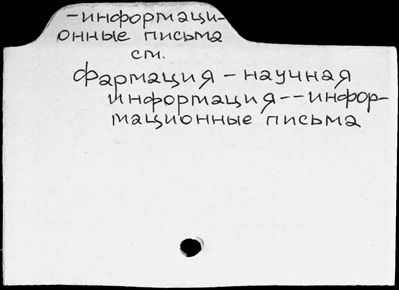 -информаци-
онные письма
см.
Фармация - научная
информация--инфор-
мационные письма